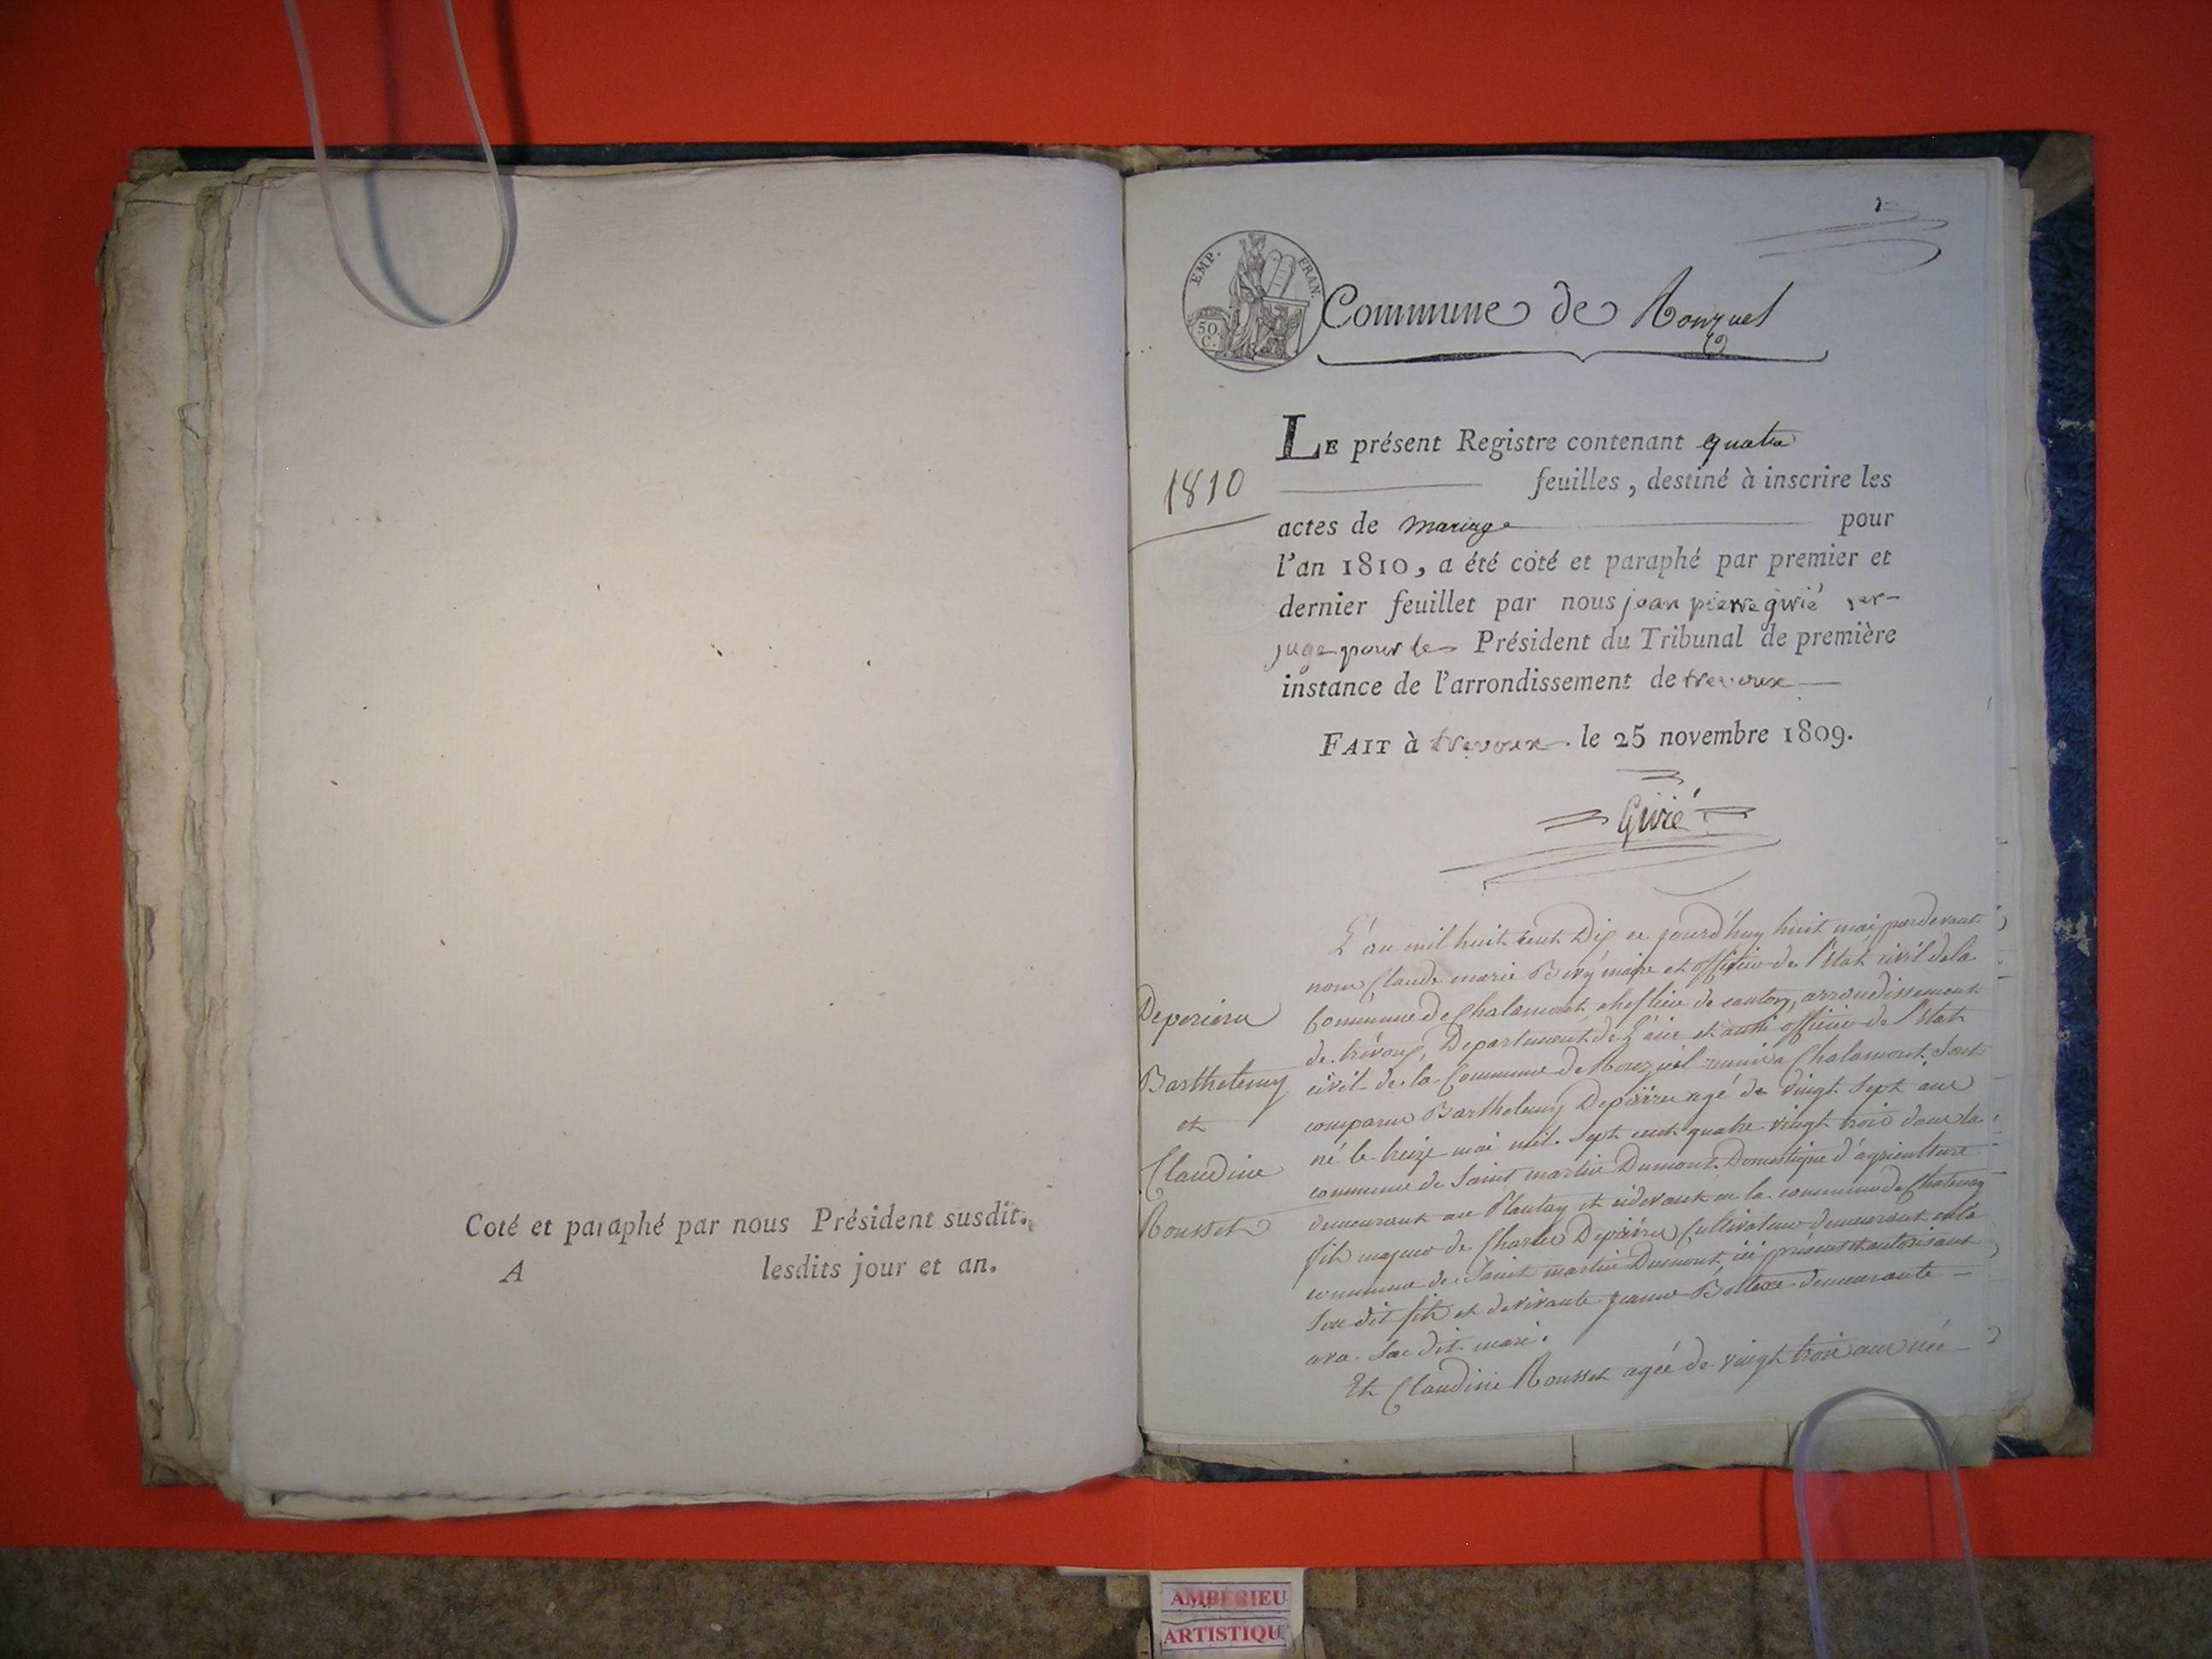 Coté et paraphé par nous Président susdit.
A lesdits jour et an.
EMP. FRAN.
50
C.
Commune de Ronzuel
LE présent Registre contenant quatre
1810
feuilles, destiné à inscrire les
actes de mariage pour
l'an 1810, a été coté et paraphé par premier et
dernier feuillet par nous jean pierre givié 1er
juge pour le Président du Tribunal de première
instance de l'arrondissement de trevoux
FAIT à trevoux le 25 novembre 1809.
Givié
L'an mil huit cent dix ce jourd'huy huit mai pardevant
nous Claude marie maire et officier de l'état civil de la
commune de Chalamont chef lieu de canton, arrondissement
de trévoux, Département de L'ain et aussi officier de l'état
civil de la Commune de Ronzuel reunie a Chalamont sont
comparus Barthelemy Deperieru agé de vingt sept ans
né le treize mai mil sept cent quatre vingt trois dans la
commune de Saint martin Dumont Domestique d'agriculture
demeurant au Plantay et cidevant en la commune de Chatenay
fils majeur de Charles Deperieru Cultivateur demeurant en la
commune de Saint martin Dumont, ici présent et autorisant
son dit fils et de vivante jeanne demeurante
avec son dit mari.
Et Claudine Rousset agée de vingt trois ans née
Deperieru
Barthelemy
et
Claudine
Rousset
AMBERIEU
ARTISTIQU